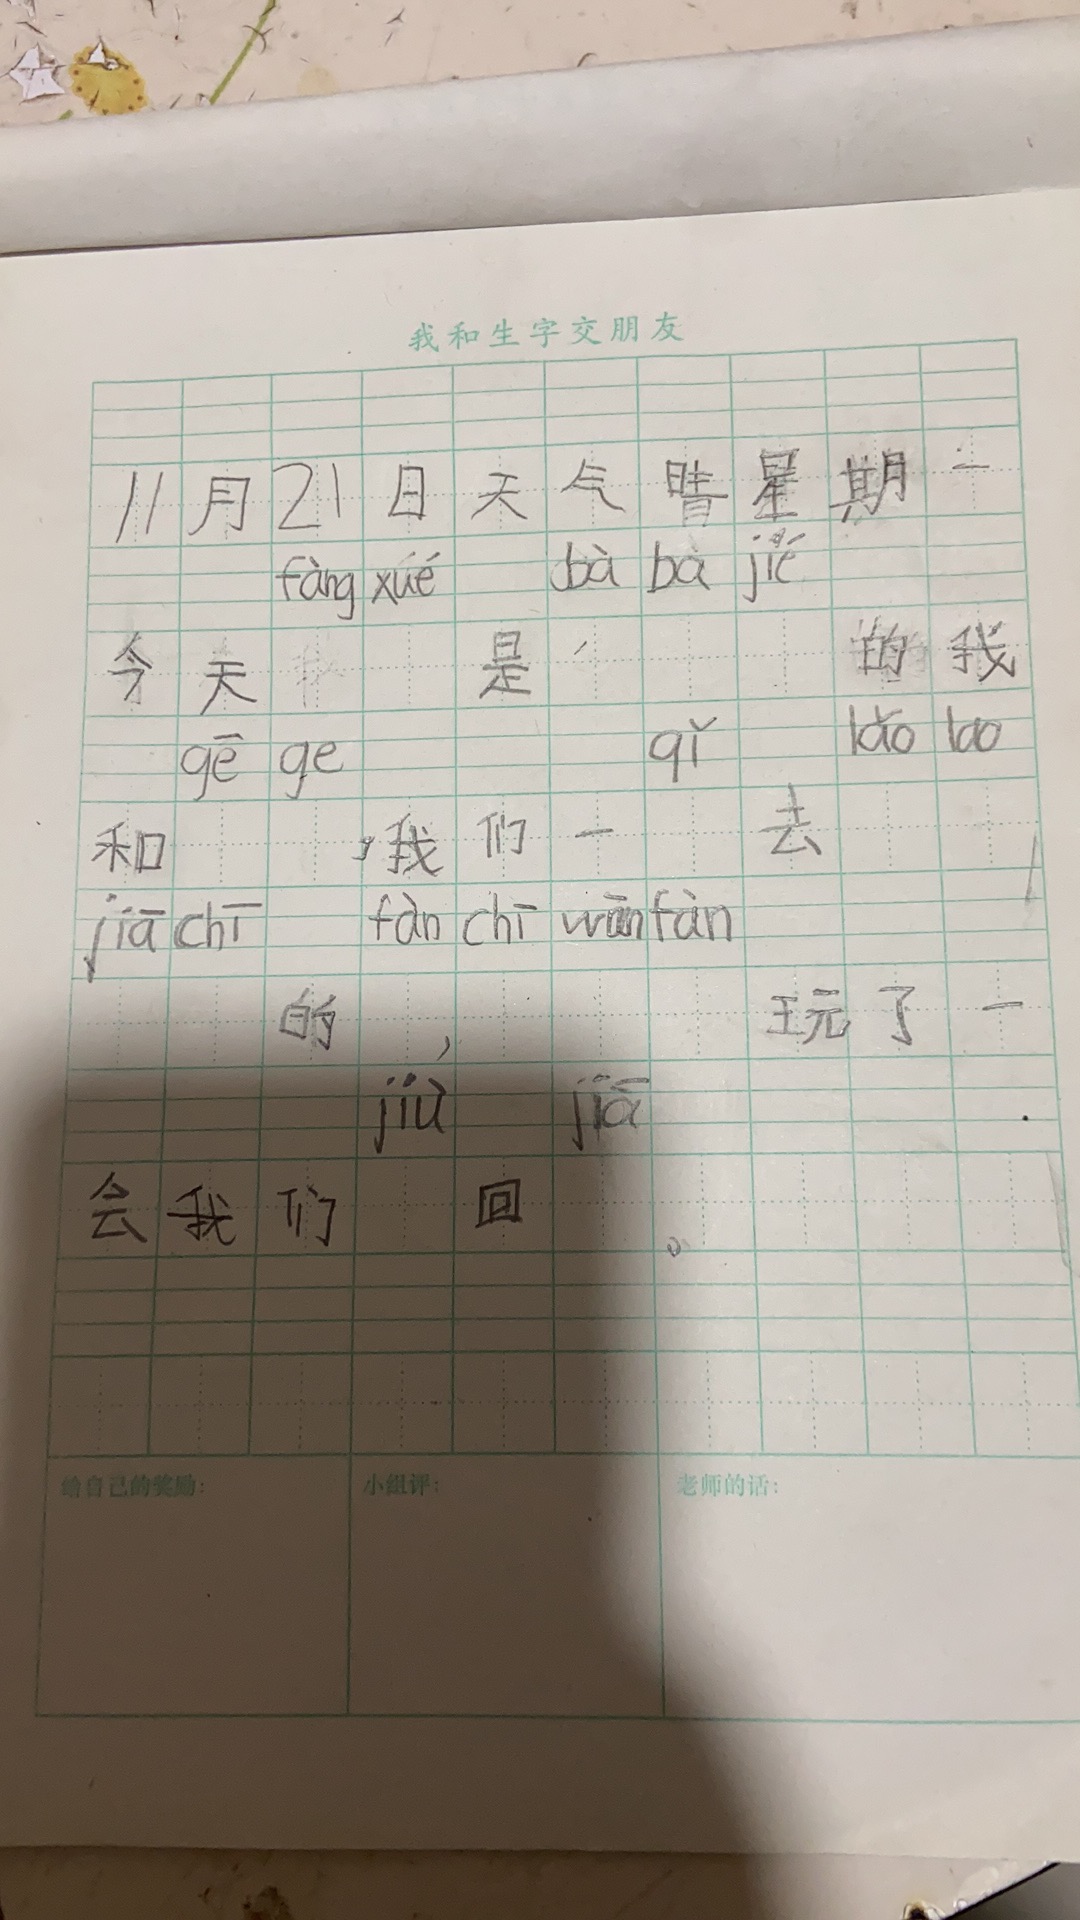 我和生字交朋友
11月21日天气晴星期一
fàng xué bà bà jié
今天 是 的我
gē ge qǐ lǎo lao
和 ,我们一 去
jiā chī fàn chī wān fàn
的 , 玩了一
jiù jiā
会我们 回 。
给自己的奖励: 小组评: 老师的话: